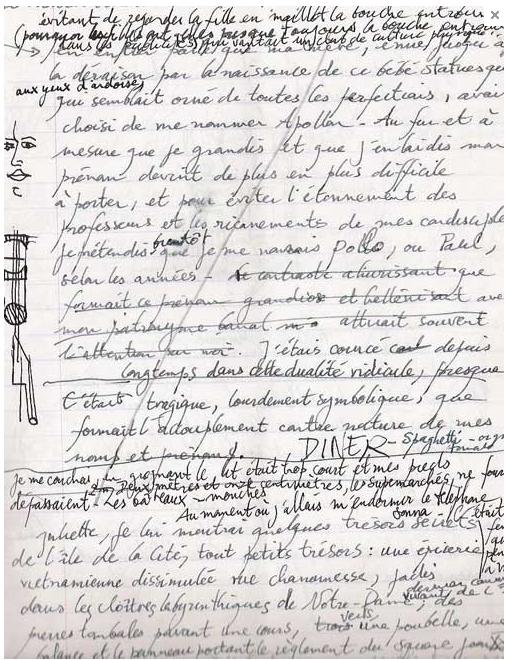 évitant de regarder la fille en maillot la bouche entrouv
(pourquoi les filles ont-elles presque toujours la bouche entrouv
dans les publicités) qui vantait un club de culture physique
parce que ma mère, émue jusqu'à
la déraison par la naissance de ce bébé statuesque
aux yeux d'ardoise,
qui semblait orné de toutes les perfections, avai
choisi de me nommer Apollon - Au fur et à
mesure que je grandis et que j'enlaidis mon
prénom devint de plus en plus difficile
à porter, et pour éviter l'étonnement des
professeurs et les ricanements de mes condisciple
je prétendis bientôt que je me nommais Pollo, ou Paul,
selon les années - le contraste ahurissant que
formait ce prénom grandiose et hellénisant ave
mon patronyme banal attirait souvent
l'attention sur moi. J'étais coincé depuis
longtemps dans cette dualité ridicule, presque
C'était tragique, lourdement symbolique, que
formait l'accouplement contre nature de mes
noms et prénoms. DINER - Spaghetti
tomate
je me couchai en grognant le lit était trop court et mes pieds
Deux mètres et onze centimètres, les supermarchés, ne
dépassaient - Les bateaux-mouches
Au moment où j'allais m'endormir le téléphone
sonna. C'était
Juliette, je lui montrai quelques trésors secrets
de l'île de la Cité, tout petits trésors : une épicerie
vietnamienne dissimulée rue Chanoinesse, jadis
dans les cloîtres labyrinthiques de Notre-Dame, des
pierres tombales pavant une cour, trois une poubelle, une
verts,
balance et le panneau portant le règlement du square